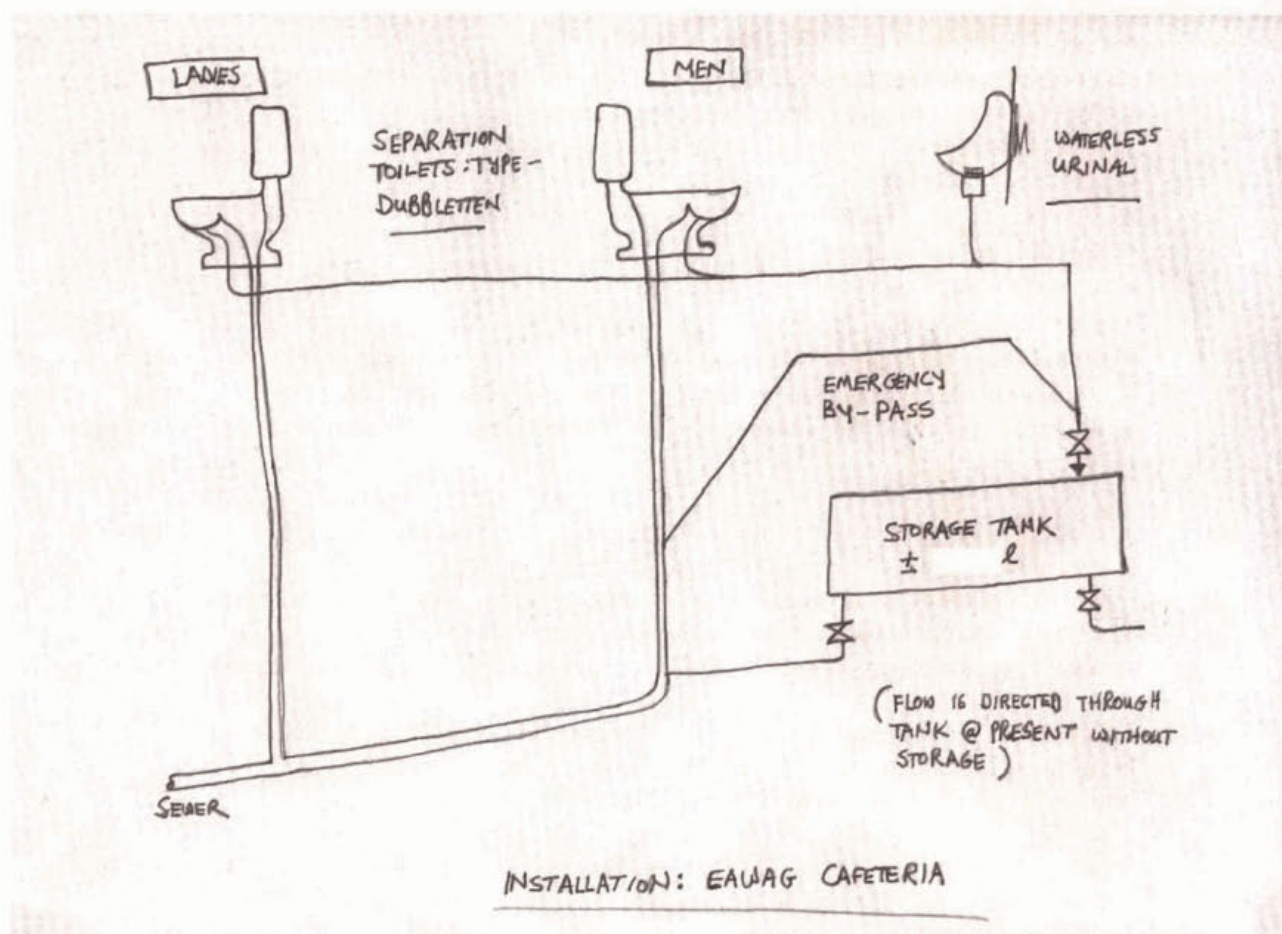 LADIES
MEN
SEPARATION
TOILETS : TYPE -
DUBBLETTEN
WATERLESS
URINAL
EMERGENCY
BY-PASS
STORAGE TANK
± ℓ
(FLOW IS DIRECTED THROUGH
TANK @ PRESENT WITHOUT
STORAGE)
SEWER
INSTALLATION: EAWAG CAFETERIA